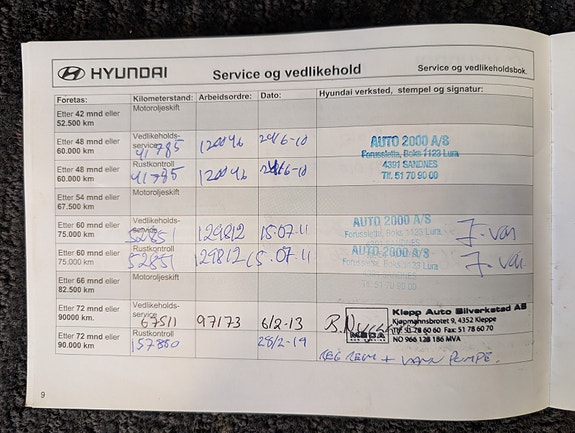 HYUNDAI Service og vedlikehold Service og vedlikeholdsbok.
Foretas: Kilometerstand: Arbeidsordre: Dato: Hyundai verksted, stempel og signatur:
Etter 42 mnd eller
52.500 km
Motoroljeskift
Etter 48 mnd eller
60.000 km
Vedlikeholds-
service
41785 120046 24/6-10
AUTO 2000 A/S
Forussletta, Boks 1123 Lura
4391 SANDNES
Tlf. 51 70 90 00
Etter 48 mnd eller
60.000 km
Rustkontroll
41785 120046 24/6-10
Etter 54 mnd eller
67.500 km
Motoroljeskift
Etter 60 mnd eller
75.000 km
Vedlikeholds-
service
52851 129812 15.07.11
AUTO 2000 A/S
Forussletta, Boks 1123 Lura
Etter 60 mnd eller
75.000 km
Rustkontroll
52851 129812 15.07.11
AUTO 2000 A/S
Forussletta, Boks 1123 Lura
Etter 66 mnd eller
82.500 km
Motoroljeskift
Etter 72 mnd eller
90000 km.
Vedlikeholds-
service
67511 97173 6/2-13
Klepp Auto Bilverksted AS
Kjøpmannsbrotet 9, 4352 Kleppe
Tlf 51 78 60 60 Fax: 51 78 60 70
NO 966 128 186 MVA
MECA
Etter 72 mnd eller
90.000 km
Rustkontroll
157860 28/2-19
REG REIM + VANN PUMPE.
9